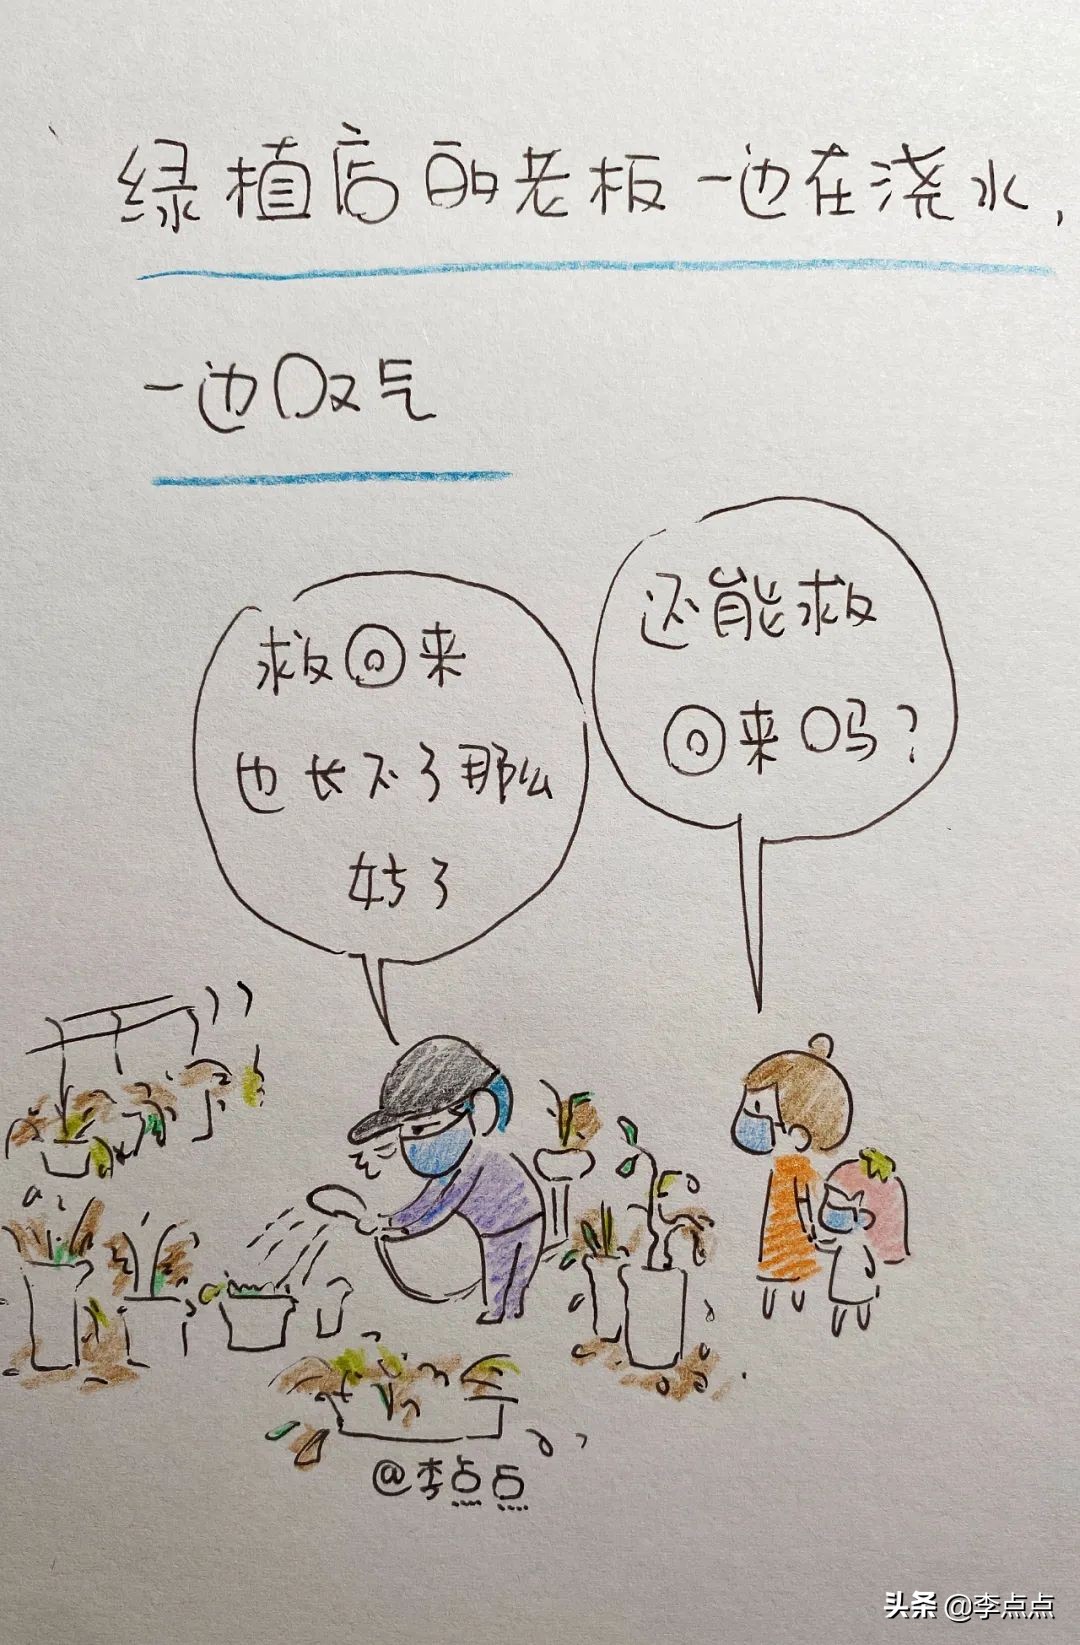 绿植店的老板一边在浇水,
一边叹气
还能救
回来吗?
救回来
也长不了那么
好了
@李点点
头条 @李点点